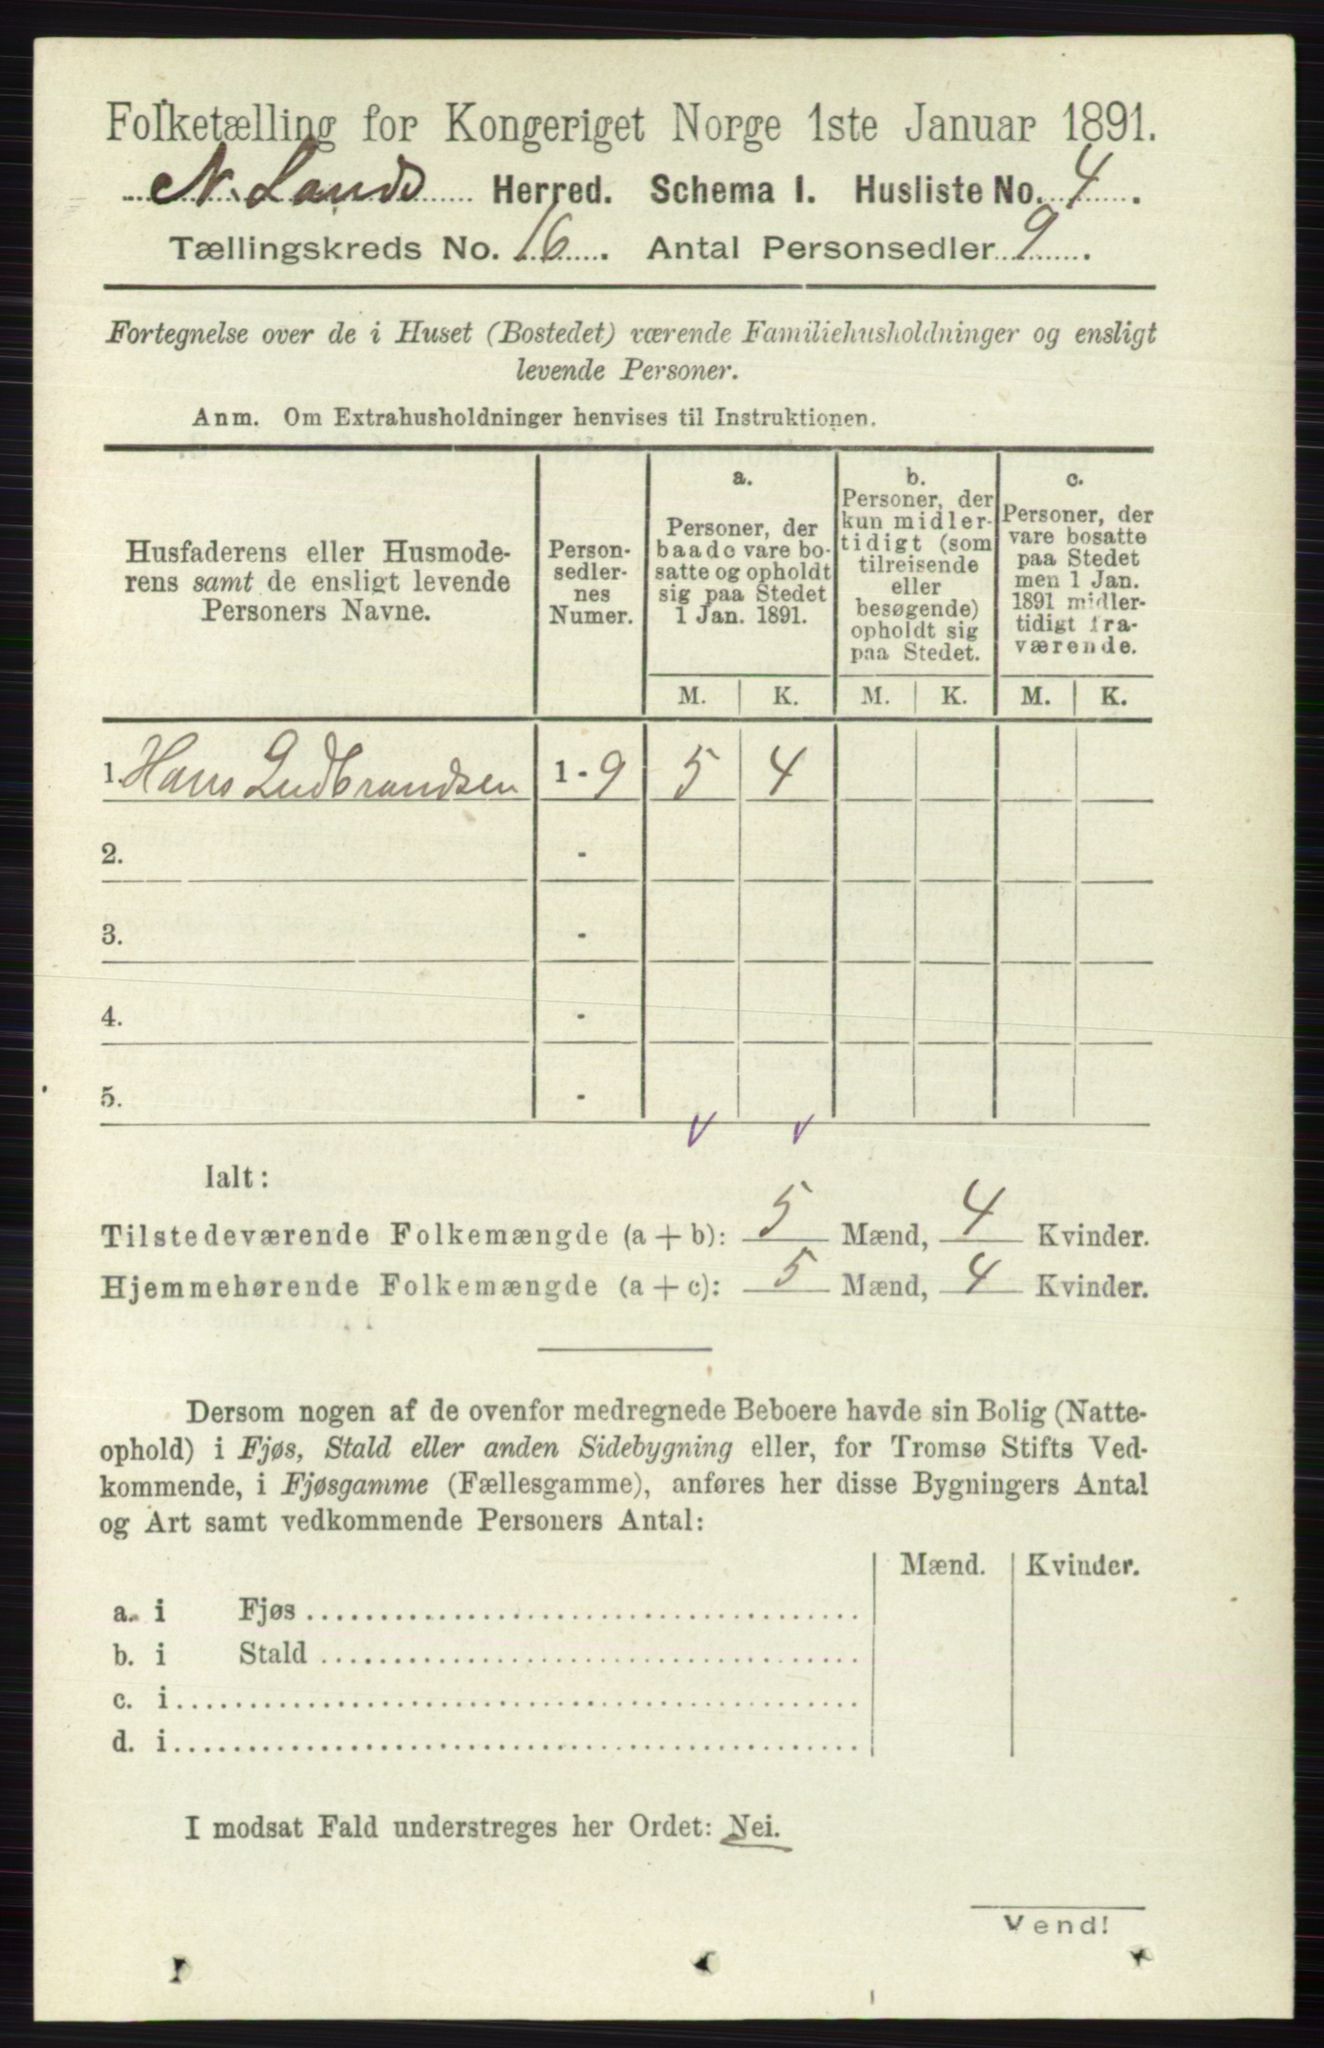 Folketælling for Kongeriget Norge 1ste Januar 1891.
N. Lands Herred. Schema I. Husliste No. 4.
Tællingskreds No. 16. Antal Personsedler 9.
Fortegnelse over de i Huset (Bostedet) værende Familiehusholdninger og ensligt
levende Personer.
Anm. Om Extrahusholdninger henvises til Instruktionen.
Husfaderens eller Husmode-
rens samt de ensligt levende
Personers Navne.
Person-
sedler-
nes
Numer.
a.
Personer, der
baade vare bo-
satte og opholdt
sig paa Stedet
1 Jan. 1891.
b.
Personer, der
kun midler-
tidigt (som
tilreisende
eller
besøgende)
opholdt sig
paa Stedet.
c.
Personer, der
vare bosatte
paa Stedet
men 1 Jan.
1891 midler-
tidigt fra-
værende.
M. K. M. K. M. K.
1. Hans Gudbrandsen 1 - 9 5 4
2. -
3. -
4. -
5. -
Ialt:
Tilstedeværende Folkemængde (a + b): 5 Mænd, 4 Kvinder.
Hjemmehørende Folkemængde (a + c): 5 Mænd, 4 Kvinder.
Dersom nogen af de ovenfor medregnede Beboere havde sin Bolig (Natte-
ophold) i Fjøs, Stald eller anden Sidebygning eller, for Tromsø Stifts Ved-
kommende, i Fjøsgamme (Fællesgamme), anføres her disse Bygningers Antal
og Art samt vedkommende Personers Antal:
Mænd. Kvinder.
a. i Fjøs
b. i Stald
c. i
d. i
I modsat Fald understreges her Ordet: Nei.
Vend!